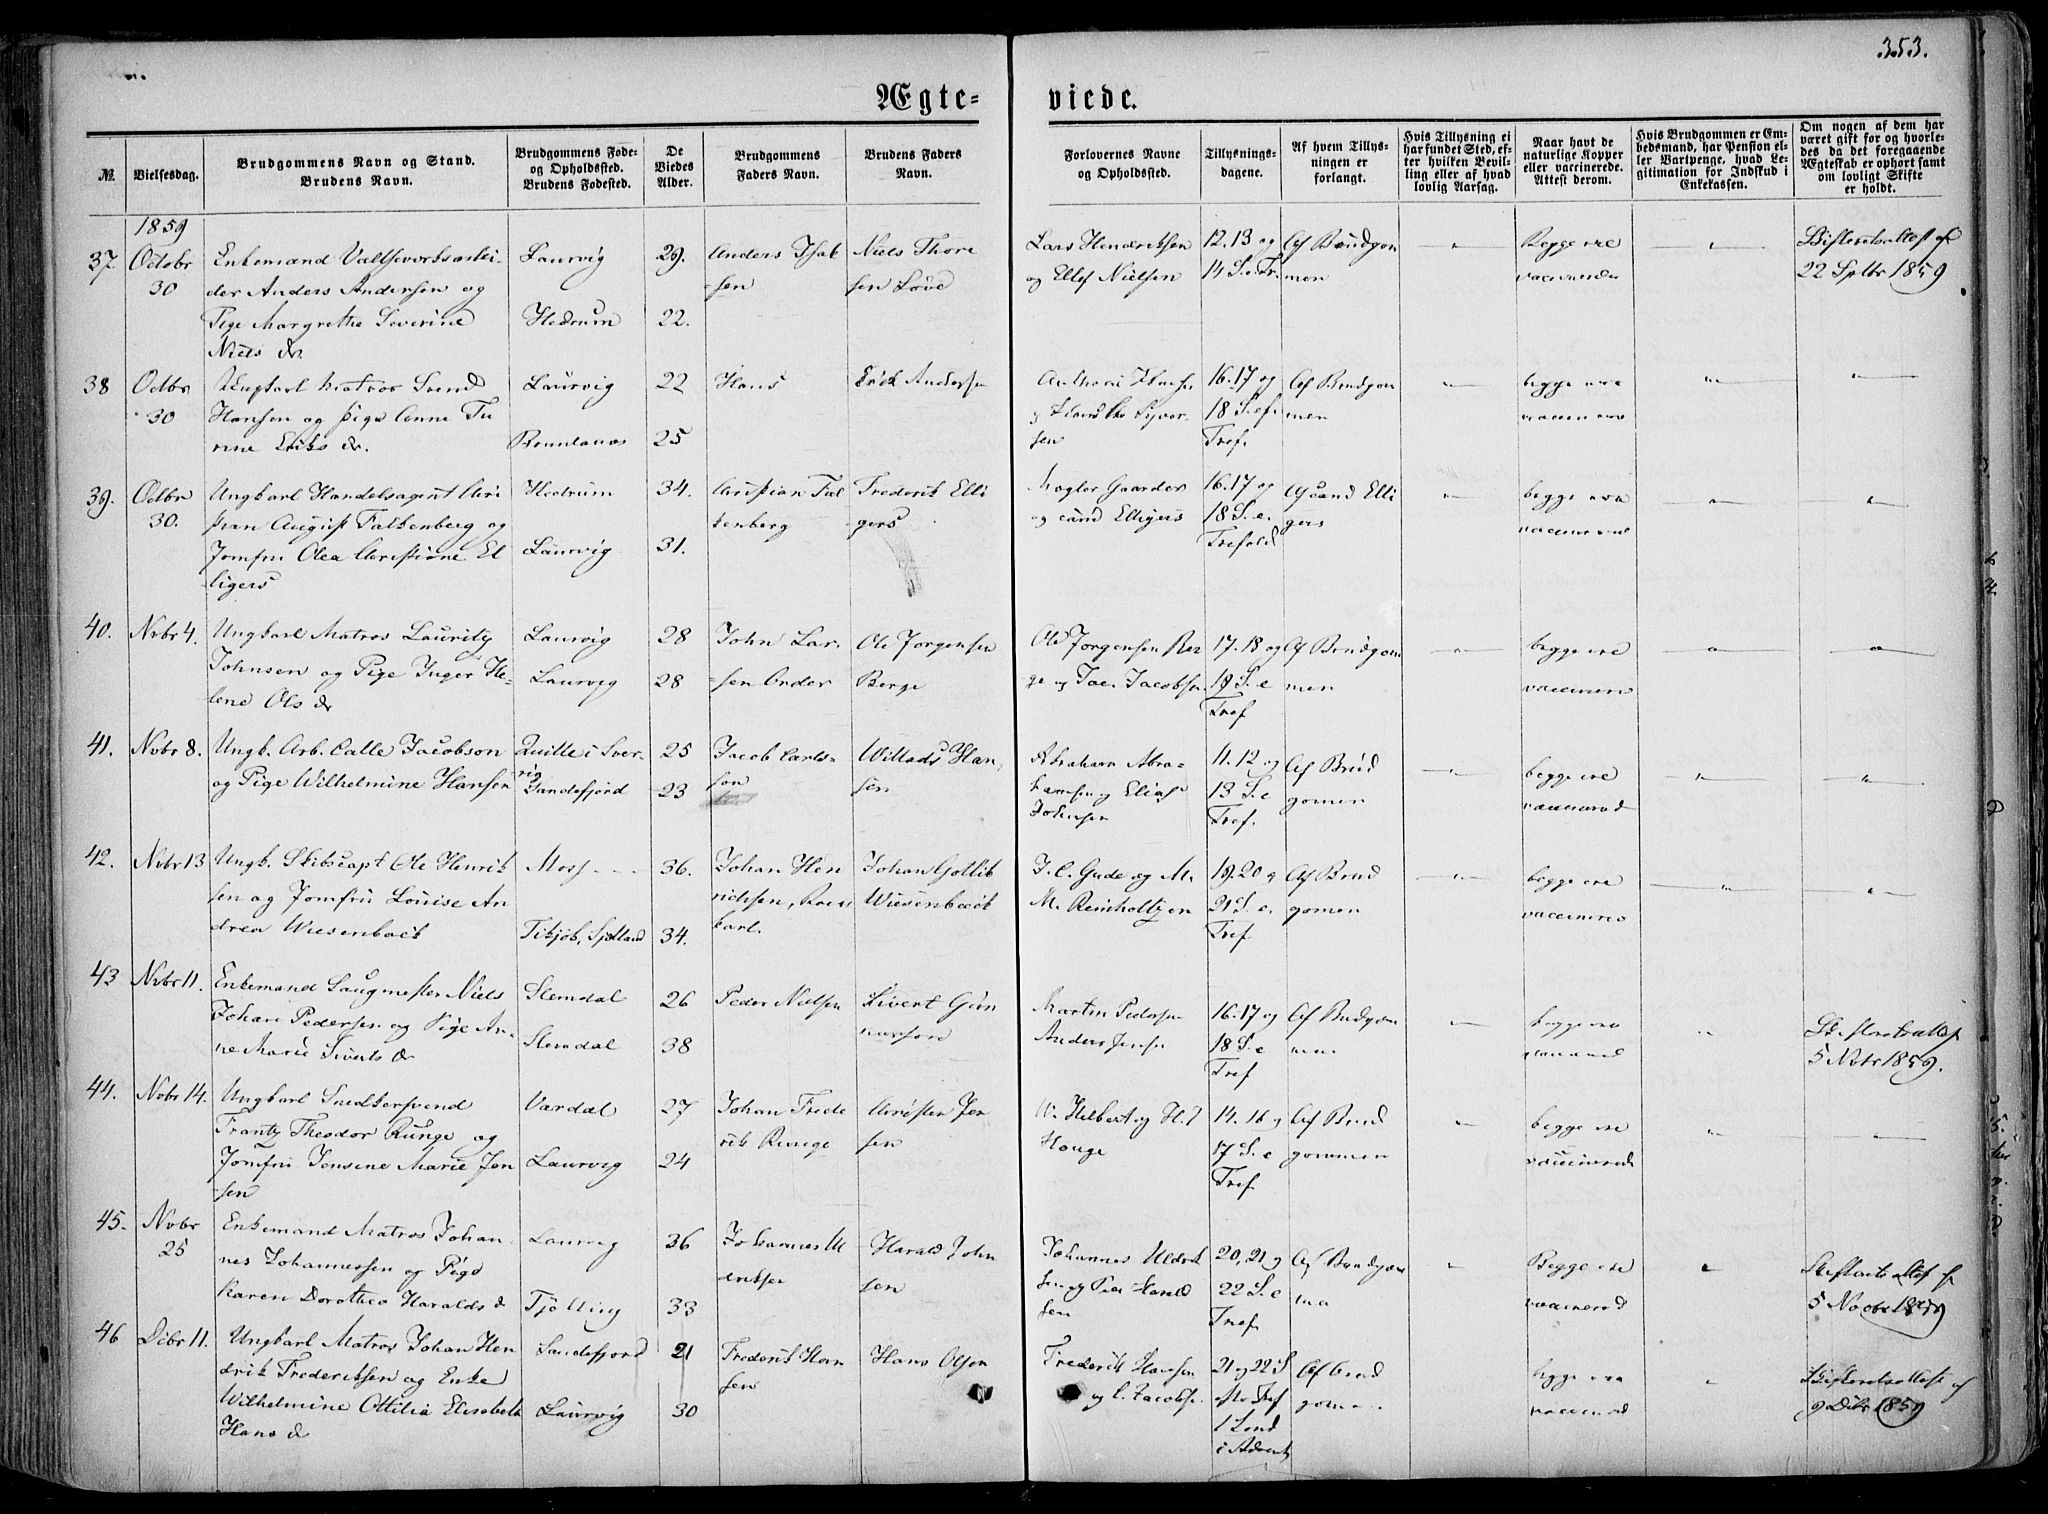 353.
Ægte-
viede.
№
Vielsesdag.
Brudgommens Navn og Stand.
Brudens Navn.
Brudgommens Føde-
og Opholdssted.
Brudens Fødested.
De
Viedes
Alder.
Brudgommens
Faders Navn.
Brudens Faders
Navn.
Forlovernes Navne
og Opholdssted.
Tillysnings-
dagene.
Af hvem Tillys-
ningen er
forlangt.
Hvis Tillysning ei
har fundet Sted, ef-
ter hvilken Bevil-
ling eller af hvad
lovlig Aarsag.
Naar havt de
naturlige Kopper
eller vaccinerede.
Attest derom.
Hvis Brudgommen er Em-
bedsmand, har Pension el-
ler Vartpenge, hvad Le-
gitimation for Indskud i
Enkekassen.
Om nogen af dem har
været gift før og hvorle-
des da det foregaaende
Ægteskab er ophørt samt
om lovligt Skifte
er holdt.
1859
37. Octobr
30
Enkemand
der Anders Andersen og
Pige Margrethe Severine
Niels dr.
Laurvig
Hedrum
29.
22.
Anders Isak
sen
Niels Thore
sen Löve
Lars Hendriksen
og Ellef Nielsen
12. 13 og
14 S. e. Tr.
Af Brudgom
men
Begge ere
vaccinerede
Skifteretsattest af
22 Sptbr 1859
38 Octbr
30
Ungkarl Matros Svend
Hansen og Pige Anne
Eriks dr.
Laurvig
Brunlanæs
22
25
Hans
Erick Andersen
sen
16. 17 og
18 S. ef.
Tref.
Af Brudgom
men
begge ere
39. Octbr
30.
Ungkarl Handelsagent Chri
stian August Falkenberg og
Jomfru Olea Christiane El
ligers
Hedrum
Laurvig
34.
31.
Christian Fal
kenberg
Frederik Elli
gers
Mægler Gaarder
og cand Elligers
16. 17 og
18 S. e.
Trefold
Af cand Elli
gers
begge ere
40. Nvbr 4.
Ungkarl Matros Lauritz
Johnsen og Pige Inger He-
lene Ols dr
Laurvig
Laurvig
28
28
John Lar-
sen
Ole Jorgensen
Berge
Ole Jorgensen Ber
ge og Jacobsen
17. 18 og
19 S. e
Tref
Af Brudgom
men
begge ere
41. Nvbr 8.
Ungk. Arb. Calle Jacobson
og Pige Wilhelmine Hansen
Quille i Sver-
rig
Sandefjord
25
23
Jacob Carls-
son
Willads Han
sen
Abraham Abra-
hamsen og Elias
Johnsen
11. 12 og
13 S. e
Tref.
Af Brud
gomen
begge ere
42. Nvbr 13
Ungk. Skibscapt Ole Henrik
sen og Jomfru Louise An
drea Wiesenbock
Moss
Tikjøb, Sjælland
36.
34.
Johan Hen
richsen,
Johan Gotlib
Wiesenbock
J. C. Gude og M.
M. Reinholtzen
19. 20 og
21 S. e.
Tref
Af Brud
gomen
begge ere
43 Nvbr 11.
Enkemand Saugmester Niels
Johan Pedersen og Pige An-
ne Marie Siverts dr
Slemdal
Slemdal
26
38
Peder Nielsen
Sivert Gun
narsen
Martin Pedersen
Anders Jensen
16. 17 og
18 S. e
Tref
Af Brudgom
men
begge ere
Skifteretsattest
5 Nvbr 1859.
44. Nvbr 14.
Ungkarl Snedkersvend
Frantz Theodor Runge og
Jomfru Jensine Marie Jen
sen
Vardal
Laurvig
27
24
Johan Frede
rik Runge
Christen Jen
sen
W. Hilbert og H. J
Houge
14. 16 og
17 S. e
Tref
Af Brud
gommen
begge ere
vaccinered
45. Nvbr
25
Enkemand Matros Johan
nes Johannessen og Pige
Karen Dorothea Haralds d
Laurvig
Tjølling
36
33
Johannes
Harald John
sen
Johannes
sen og Peer Harald
sen
20, 21 og
22 S. e
Tref
Af Brudgom
Begge ere
vaccinered
Skifterets attest af
5 Novbr 1859
46 Dcbr 11.
Ungkarl Matros Johan Hen
drik Frederiksen og Enke
Wilhelmine Ottilia Elisabeth
Hans d
Sandefjord
Laurvig
21
30
Frederik Han
sen
Hans Olsen
Frederik Hansen
og C. Jacobsen
21 og 22 S
Tref
1 Sønd
i Advent
Af Brud
gomen
begge ere
Skifteretsattest af
9 Dcbr 1859